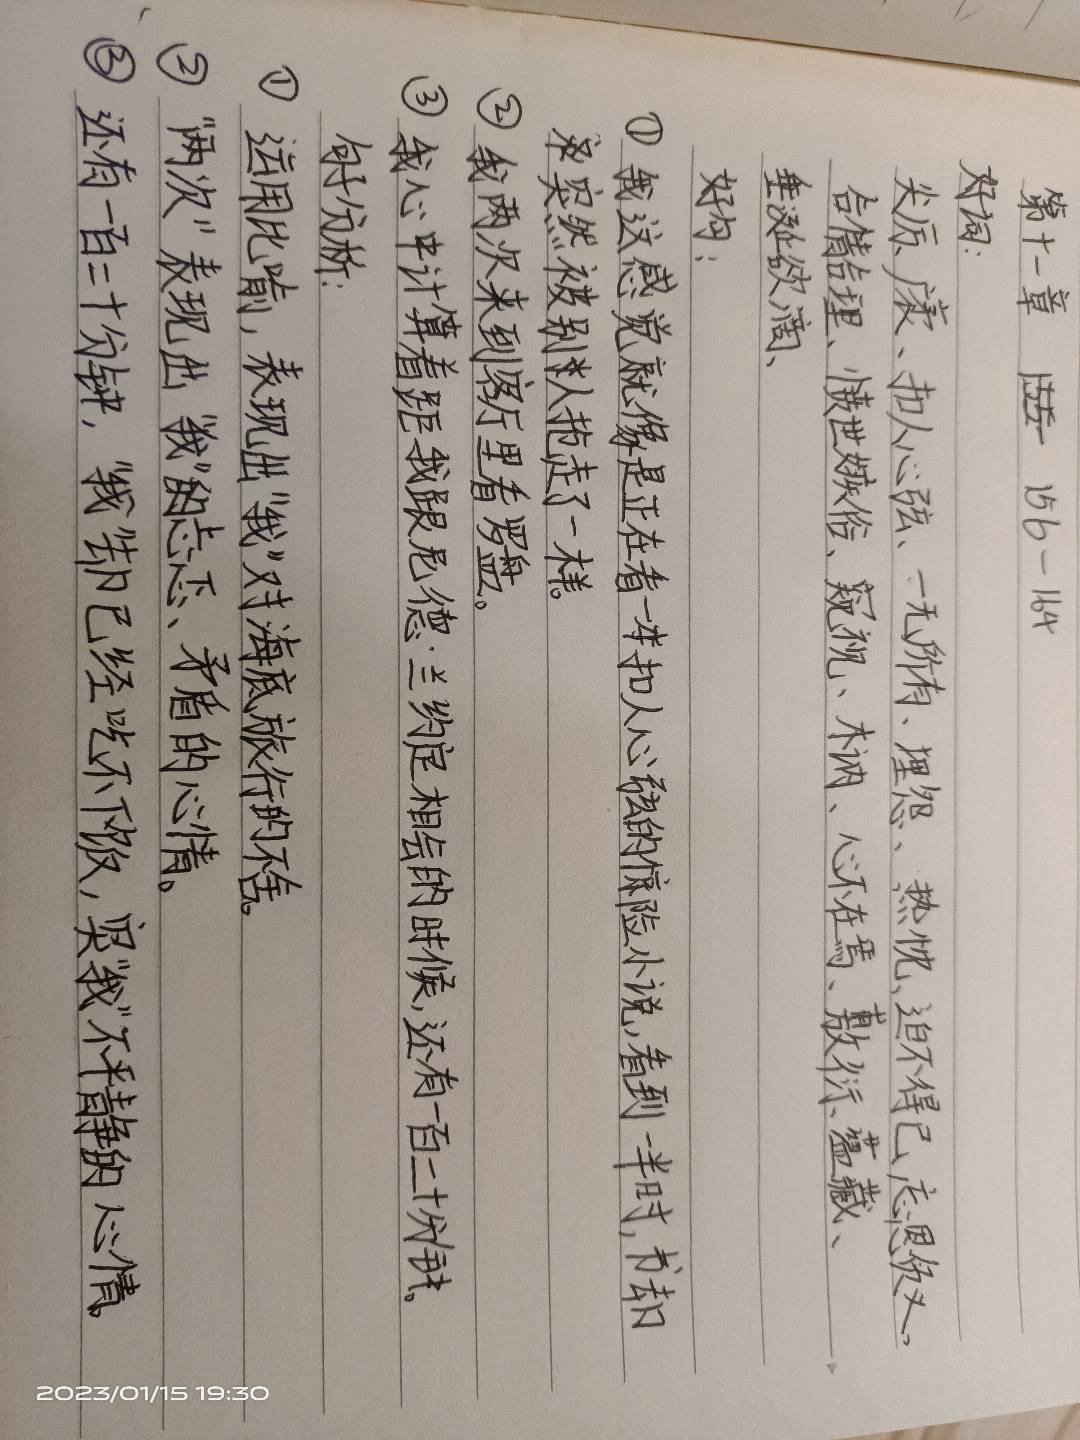 第十一章 156-164
好词:
尖厉、广袤、扣人心弦、一无所有、埋怨、热忱、迫不得已、忘恩负义。
合情合理、愤世嫉俗、窥视、木讷、心不在焉、敷衍、蕴藏、
垂涎欲滴、
好句:
① 我这感觉就像是正在看一本扣人心弦的惊险小说,看到一半时,书却
突然被别人抢走了一样。
② 我两次来到客厅里看罗盘。
③ 我心中计算着距我跟尼德·兰约定相会的时候,还有一百二十分钟。
句子分析:
① 运用比喻,表现出“我”对海底旅行的不舍。
② “两次”表现出“我”的忐忑、矛盾的心情。
③ 还有一百二十分钟,“我”却已经吃不下饭,突“我”不平静的心情。
2023/01/15 19:30